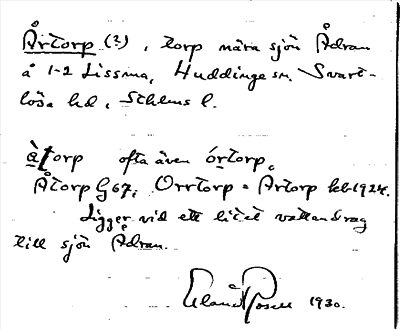 Årtorp (?), torp nära sjön Ådran
å 1-2 Lissma, Huddinge sn. Svart-
lösa hd, Sthlms l.
åtorp ofta även órtorp.
Åtorp G 67; Orrtorp = Artorp kb 1924.
Ligger vid ett litet vattendrag
till sjön Ådran.
Erland Rosell 1930.